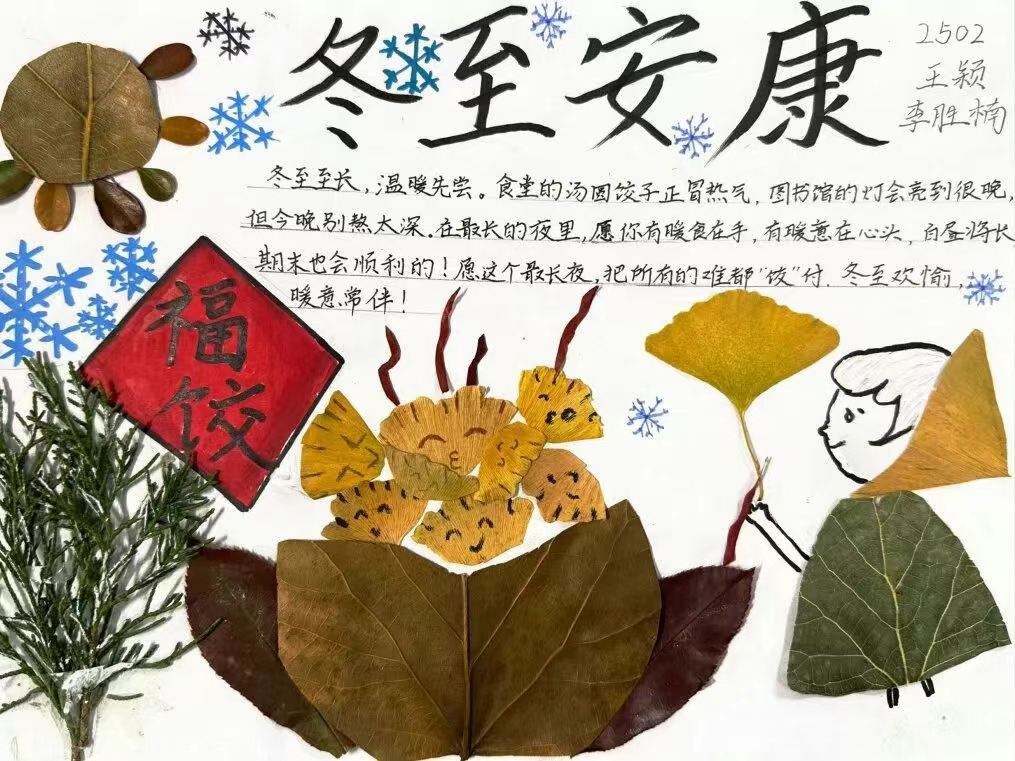 冬至安康
2502
王颖
李胜楠
冬至至长，温暖先尝。食堂的汤圆饺子正冒热气，图书馆的灯会亮到很晚，
但今晚别熬太深。在最长的夜里，愿你有暖食在手，有暖意在心头，白昼将长，
期末也会顺利的！愿这个最长夜，把所有的难都“饺”付，冬至欢愉，
暖意常伴！
福
饺